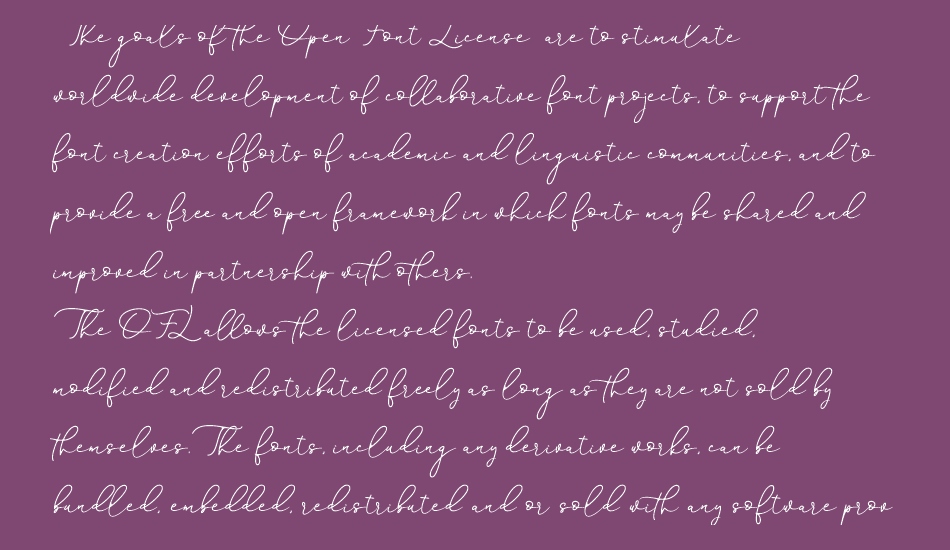 The goals of the Open Font License are to stimulate
worldwide development of collaborative font projects, to support the
font creation efforts of academic and linguistic communities, and to
provide a free and open framework in which fonts may be shared and
improved in partnership with others.
The OFL allows the licensed fonts to be used, studied,
modified and redistributed freely as long as they are not sold by
themselves. The fonts, including any derivative works, can be
bundled, embedded, redistributed and or sold with any software prov